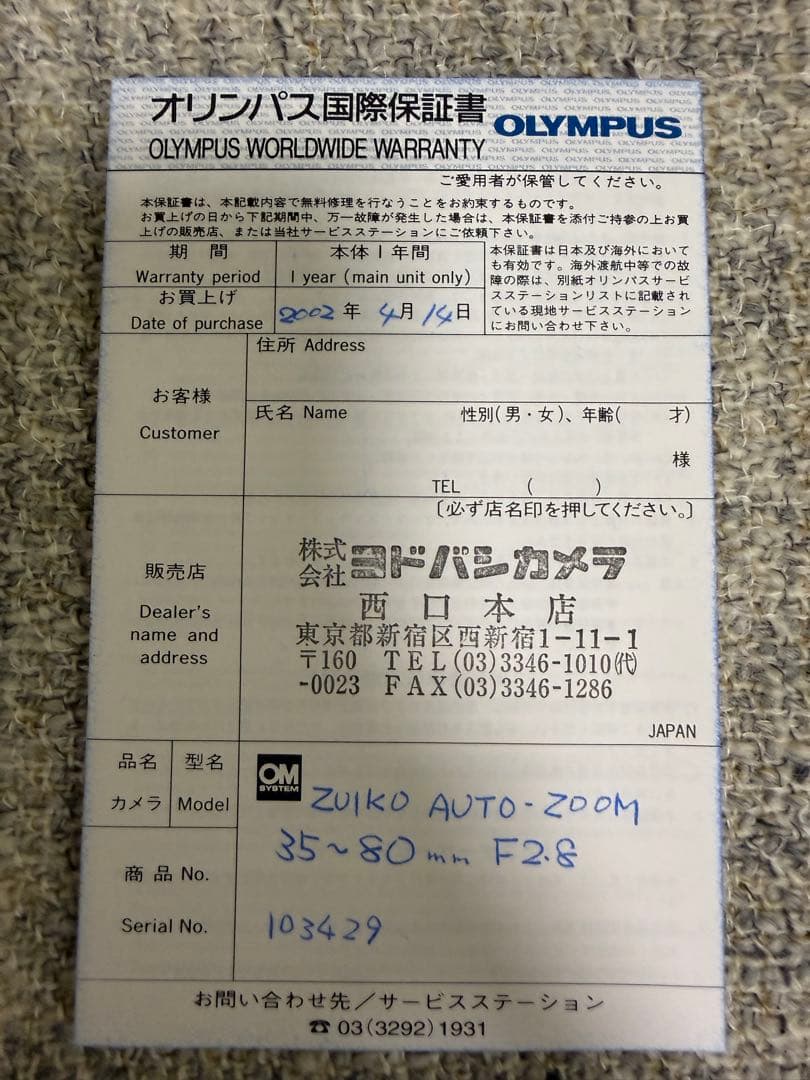 オリンパス国際保証書
OLYMPUS
OLYMPUS WORLDWIDE WARRANTY
ご愛用者が保管してください。
本保証書は、本記載内容で無料修理を行なうことをお約束するものです。
お買上げの日から下記期間中、万一故障が発生した場合は、本保証書を添付ご持参の上お買
上げの販売店、または当社サービスステーションにご依頼下さい。
期間
Warranty period
本体1年間
1 year (main unit only)
本保証書は日本及び海外において
も有効です。海外渡航中等での故
障の際は、別紙オリンパスサービ
スステーションリストに記載され
ている現地サービスステーション
にお問い合わせ下さい。
お買上げ
Date of purchase
2002年 4月 14日
お客様
Customer
住所 Address
氏名 Name 性別(男・女)、年齢( 才)
様
TEL ( )
〔必ず店名印を押してください。〕
販売店
Dealer's
name and
address
株式会社 ヨドバシカメラ
西口本店
東京都新宿区西新宿1-11-1
〒160 TEL(03)3346-1010(代)
-0023 FAX(03)3346-1286
JAPAN
品名
カメラ
型名
Model
OM
SYSTEM
ZUIKO AUTO-ZOOM
35~80mm F2.8
商品 No.
Serial No.
103429
お問い合わせ先/サービスステーション
☎ 03(3292)1931